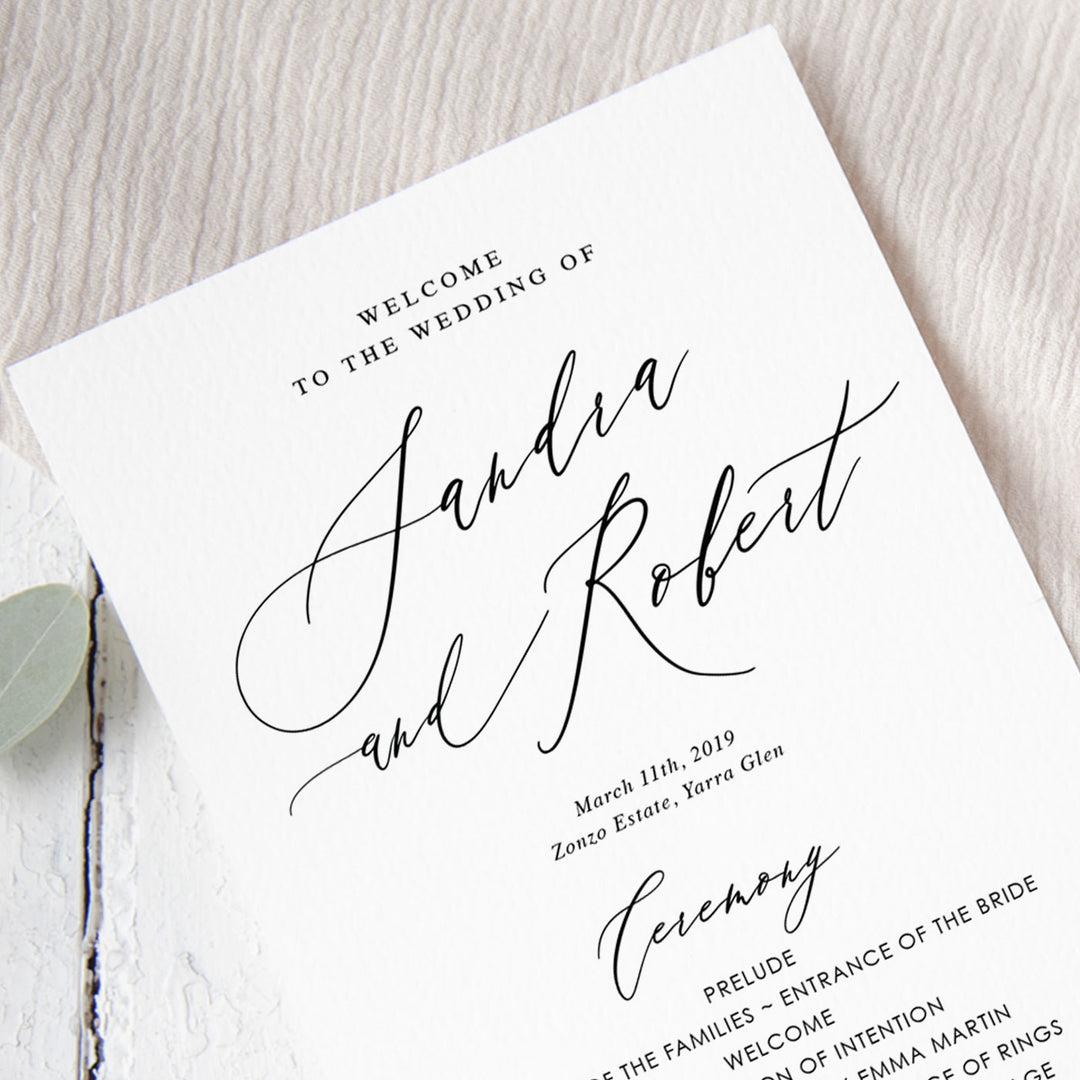 WELCOME
TO THE WEDDING OF
Sandra
and Robert
March 11th, 2019
Zonzo Estate, Yarra Glen
Ceremony
PRELUDE
OF THE FAMILIES ~ ENTRANCE OF THE BRIDE
WELCOME
OF INTENTION
EMMA MARTIN
OF RINGS